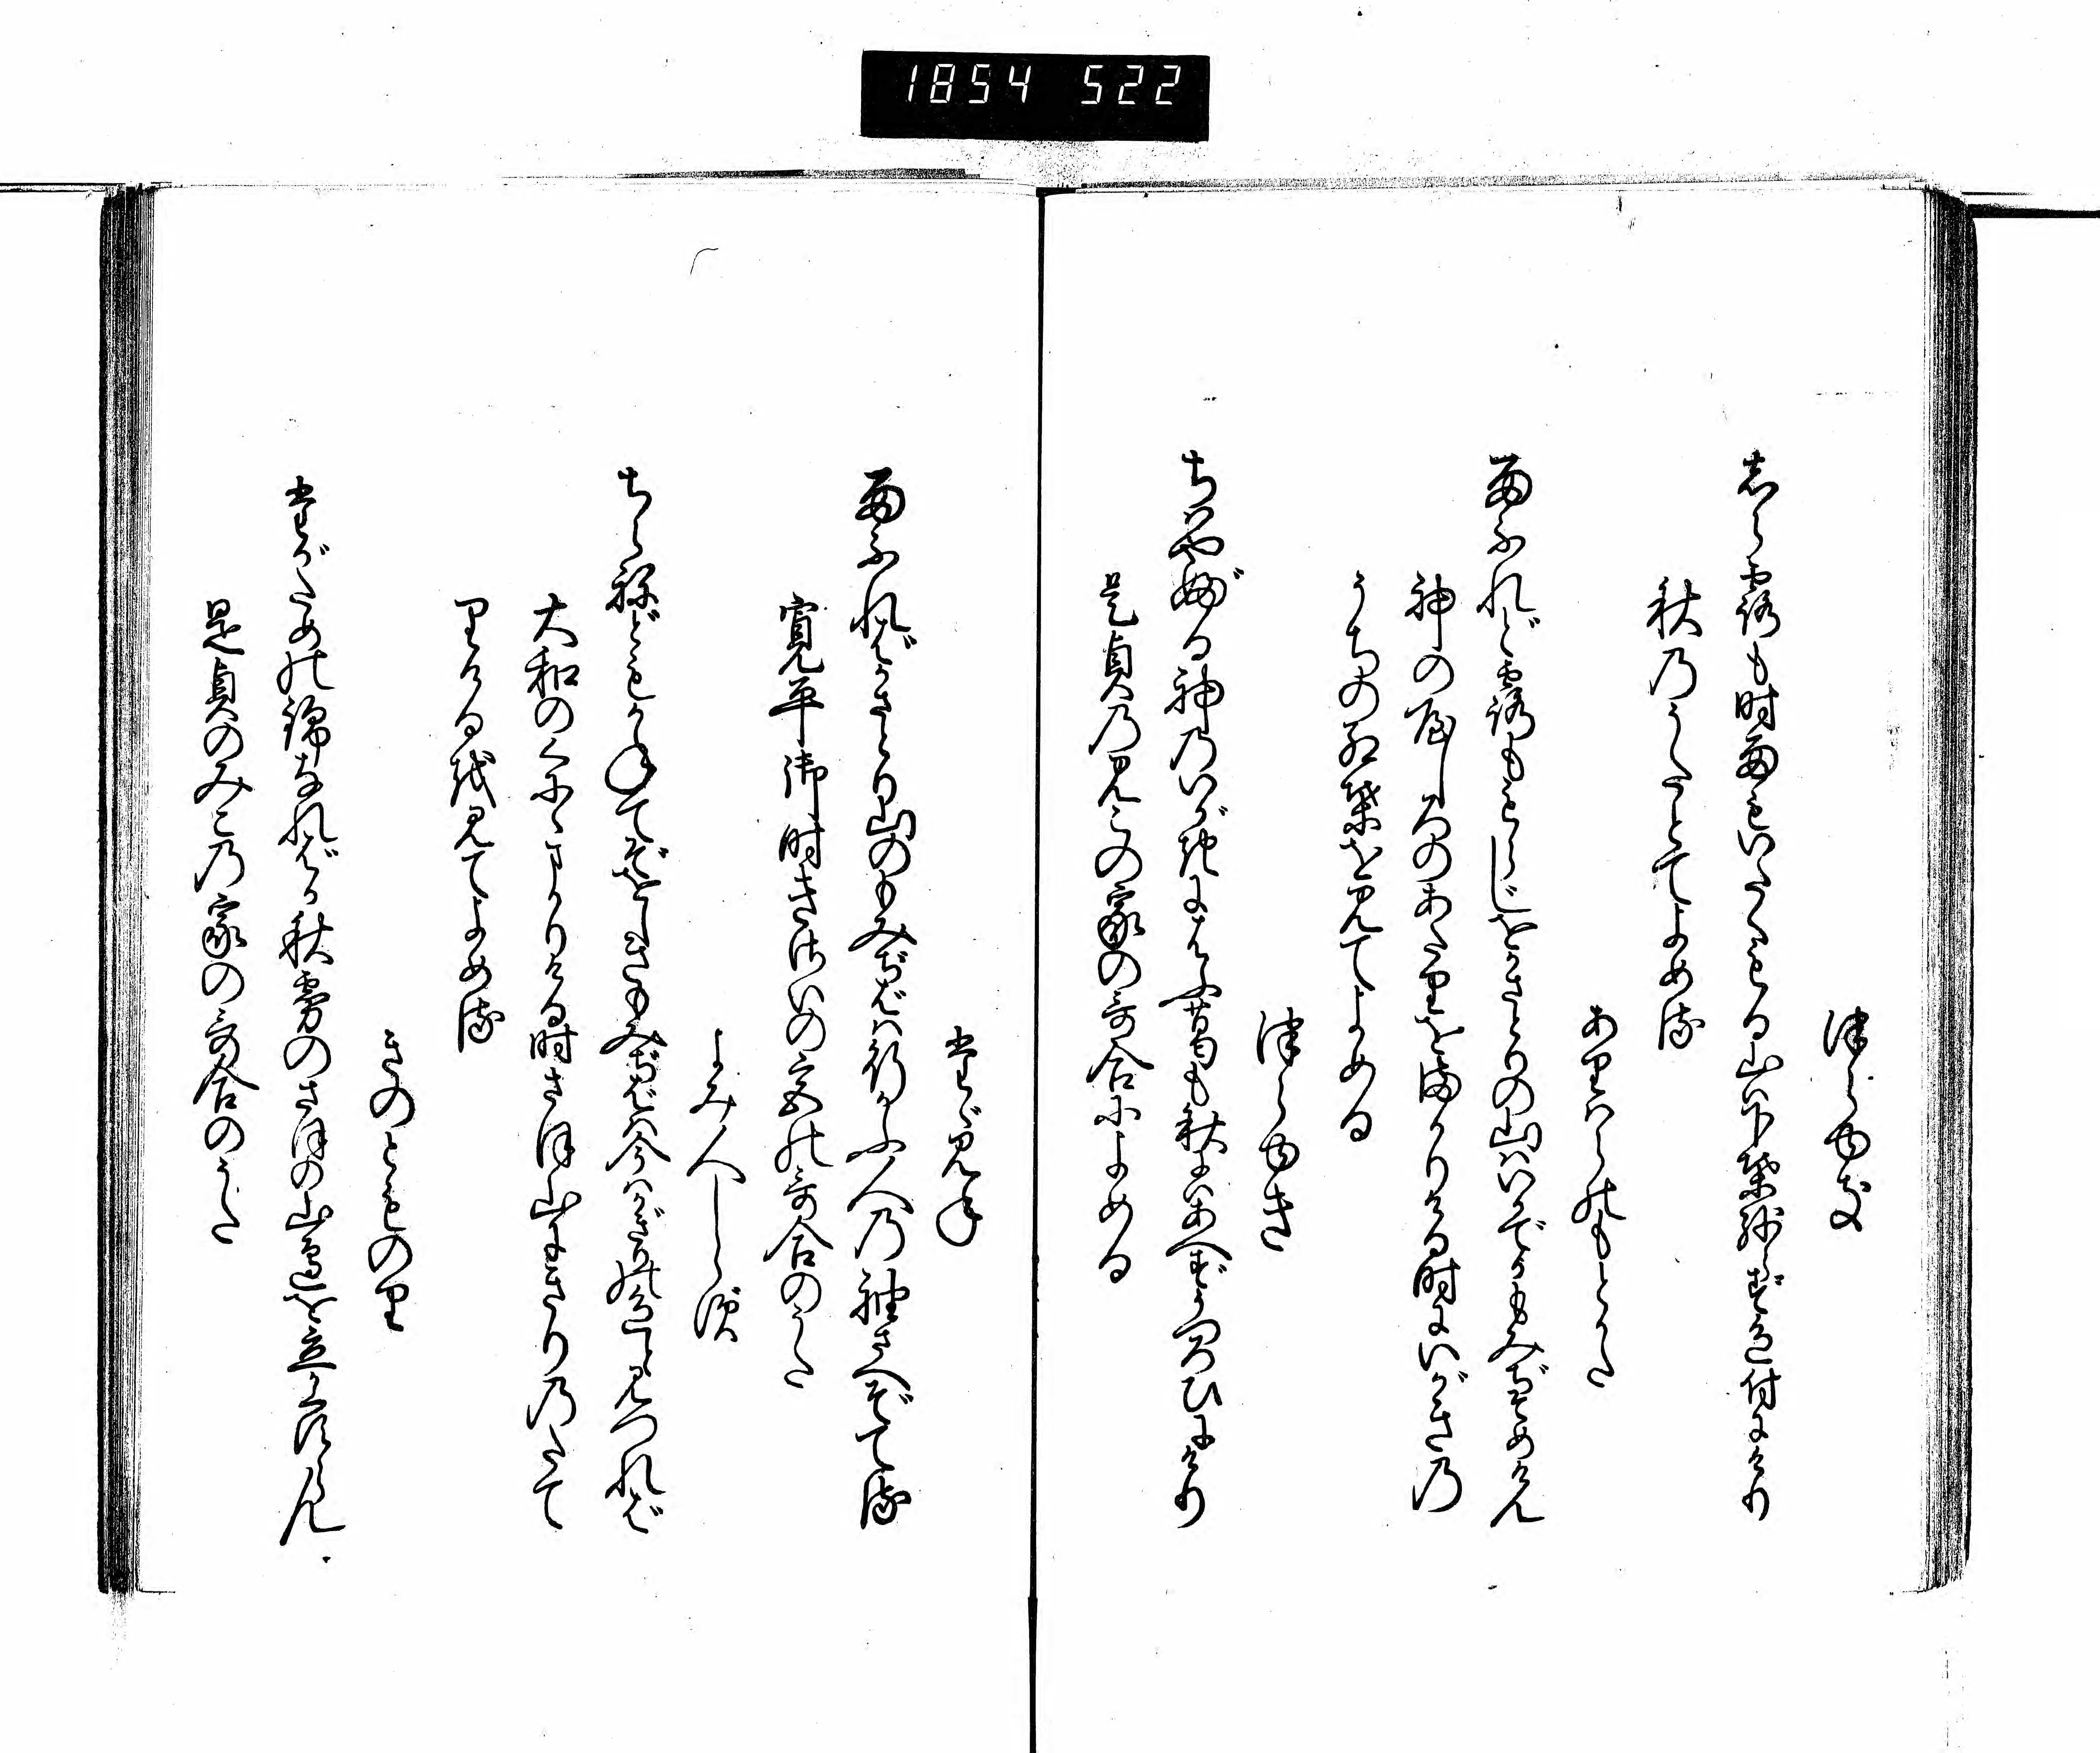 1854 522
津らゆき
しら露も時雨もいたくもる山ハ下葉残らず色付にけり
秋乃うたとてよめる
ありハらのもとかた
雨ふれど露ももらじをかさとりの山ハいかでかもみぢそめけん
神の屋しろのあたりをまかりける時にいがき乃
うちの紅葉を見てよめる
津らゆき
ちハやぶる神乃いがきにはふ葛も秋にハあへずうつろひにけり
是貞乃見この家の哥合によめる
たゞみね
雨ふれバかさとり山のもみぢばハ行かふ人乃袖さへぞてる
寛平御時きさいの宮の哥合のうた
よみ人しらず
ちらねどもかねてぞをしきもみぢばハ今ハかぎりの色と見つれバ
大和のくにゝまかりける時さほ山にきり乃たて
りけるを見てよめる
きのとものり
たがための錦なれバか秋霧のさほの山邉を立かくすらん
是貞のみこ乃家の哥合のうた